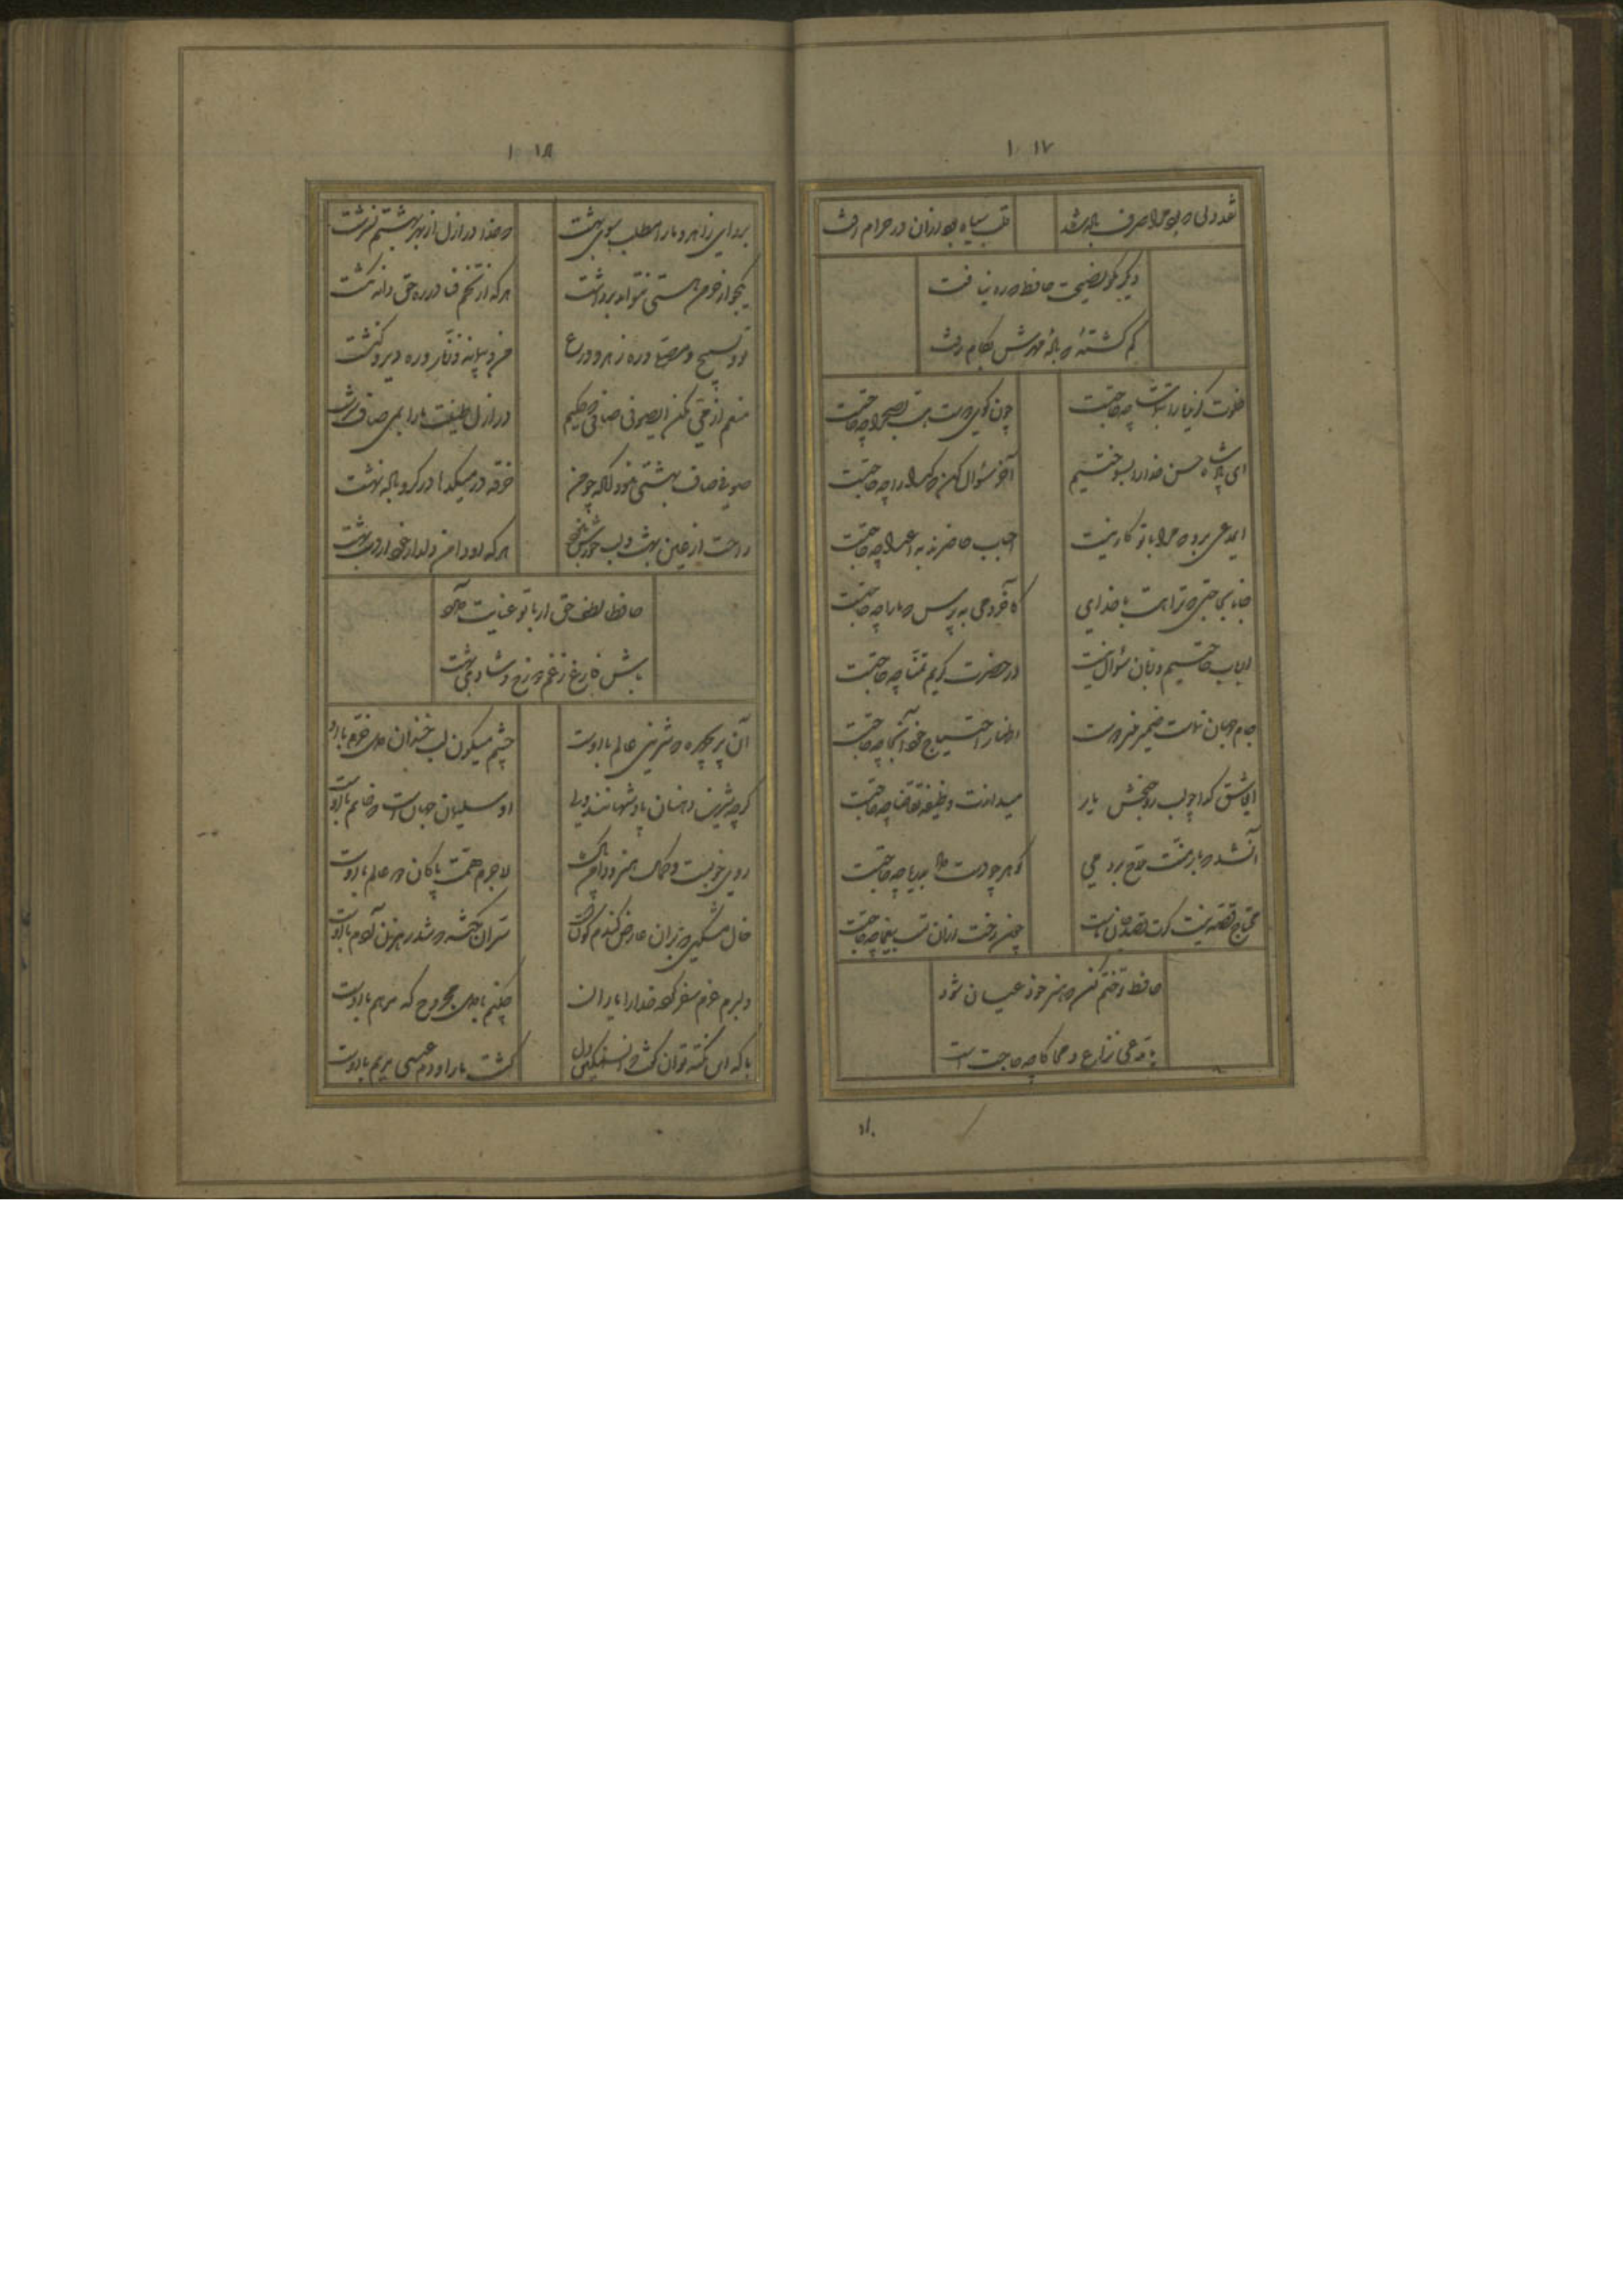 ۱۰۱۷
نقد دلی که بود مرا صرف باده شد
قلب سیاه بود ازان در حرام رفت
دیگر مکو نصیحت حافظ که ره نیافت
کم کشتهٔ که بادهٔ مهرش بکام رفت
خلوت کزیده را بتماشا چه حاجتست
چون کوی دوست هست بصحرا چه حاجتست
ای پادشاه حسن خدا را بسوختیم
آخر سؤال کن که کدا را چه حاجتست
ای مدعی برو که مرا با تو کار نیست
احباب حاضرند به اعدا چه حاجتست
جانا بحاجتی که ترا هست با خدای
کاخر دمی بپرس که ما را چه حاجتست
ارباب حاجتیم و زبان سؤال نیست
در حضرت کریم تمنا چه حاجتست
جام جهان نماست ضمیر منیر دوست
اظهار احتیاج خود آنجا چه حاجتست
ای عاشق کدا چو لب روحبخش یار
میداندت وظیفه تقاضا چه حاجتست
آن شد که بار منت ملاح بردمی
کوهر چو دست داد بدریا چه حاجتست
محتاج قصه نیست کرت قصد جان ماست
چون رخت ازان تست بیغما چه حاجتست
حافظ تو ختم کن که هنر خود عیان شود
با مدعی نزاع و محاکا چه حاجت است
۱۰۱۸
برو ای زاهد و ما را مطلب سوی بهشت
که خدا در ازل از بهر بهشتم نسرشت
یکجو از خرمن هستی نتواند برداشت
هر که از تخم فنا در ره حق دانه نکشت
تو و تسبیح و مصلا و ره زهد و ورع
من و میخانه و زنار و ره دیر و کنشت
منعم از می مکن ای صوفی صافی که حکیم
در ازل طینت ما را بمی صاف سرشت
صوفی صاف بهشتی نبود زانکه چو من
خرقه در میکدها در کرو باده نهشت
راحت از عیش بهشت و لب حورش نبود
هر که او دامن دلدار خود از دست بهشت
حافظا لطف حق ار با تو عنایت دارد
باش فارغ ز غم دوزخ و شادی بهشت
آن پریچهره که شیرینی عالم با اوست
چشم میکون لب خندان دل خرم با اوست
کرچه شیرین دهنان پادشهانند ولی
او سلیمان جهانست که خاتم با اوست
روی خوبست و کمال هنر و دامن پاک
لاجرم همت پاکان دو عالم با اوست
خال مشکین که بران عارض کندم کونست
سر آن دانه که شد رهزن آدم با اوست
دلبرم عزم سفر کرد خدا را یاران
چکنم با دل مجروح که مرهم با اوست
با که این نکته توان کفت که آن سنکین دل
کشت ما را و دم عیسی مریم با اوست